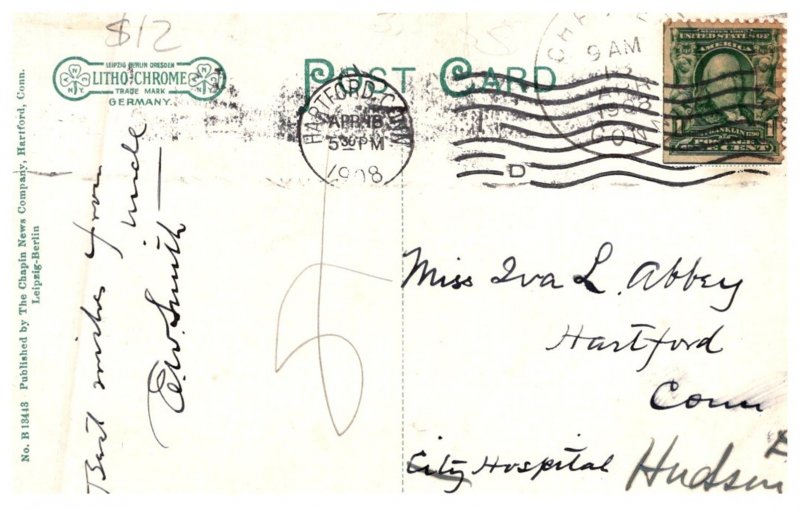 $12
LEIPZIG BERLIN DRESDEN
LITHO-CHROME
TRADE MARK
GERMANY.
POST CARD
HARTFORD, CONN.
APR 18
5 30 PM
1908
9 AM
1908
CONN
D
SERIES 1902
UNITED STATES OF
AMERICA
FRANKLIN
POSTAGE
1
CENT
No. B 13443 Published by The Chapin News Company, Hartford, Conn.
Leipzig-Berlin
Best wishes from
Uncle
E.W. Smith
Miss Iva L. Abbey
Hartford
Conn
City Hospital
Hudson